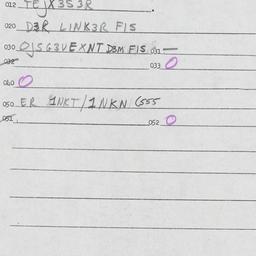 012 TEJX3S3R
020 D3R LINK3R FIS
030 OJSG3VEXNT D3M FIS 031 —
032 033 O
040 O
050 ER 1NKT/1NKN GSS
051 052 O